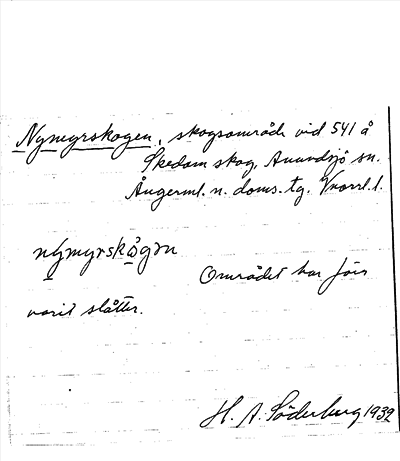 Nymyrskogen, skogsområde vid 541 å
Skedom skog, Anundsjö sn.
Ångerml. n. doms. tg. Vnorrl. l.
nymyrskågen
Området har förr
varit slåtter.
H. A. Söderberg 1939